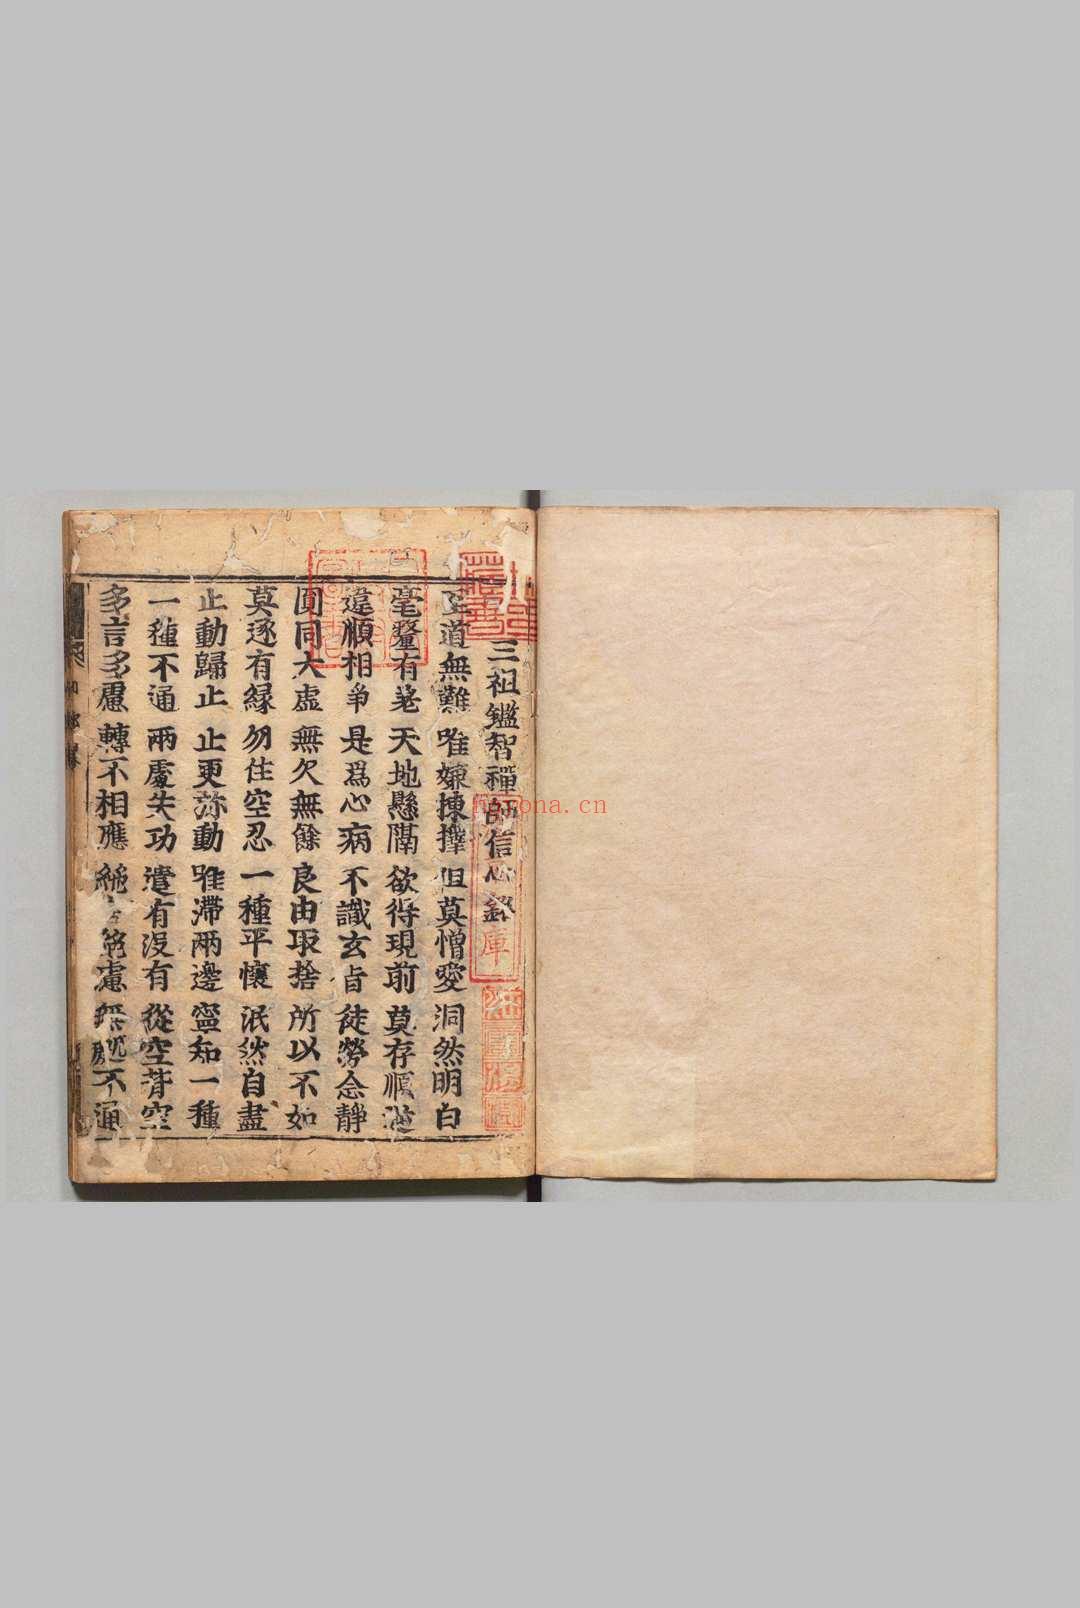 三祖鑑智禪師信心銘
至道無難 唯嫌揀擇 但莫憎愛 洞然明白
毫釐有差 天地懸隔 欲得現前 莫存順逆
違順相爭 是爲心病 不識玄旨 徒勞念靜
圓同大虛 無欠無餘 良由取捨 所以不如
莫逐有緣 勿住空忍 一種平懷 泯然自盡
止動歸止 止更弥動 唯滯兩邊 寧知一種
一種不通 兩處失功 遣有沒有 從空背空
多言多慮 轉不相應 絶言絶慮 無處不通
庫
hayona.cn